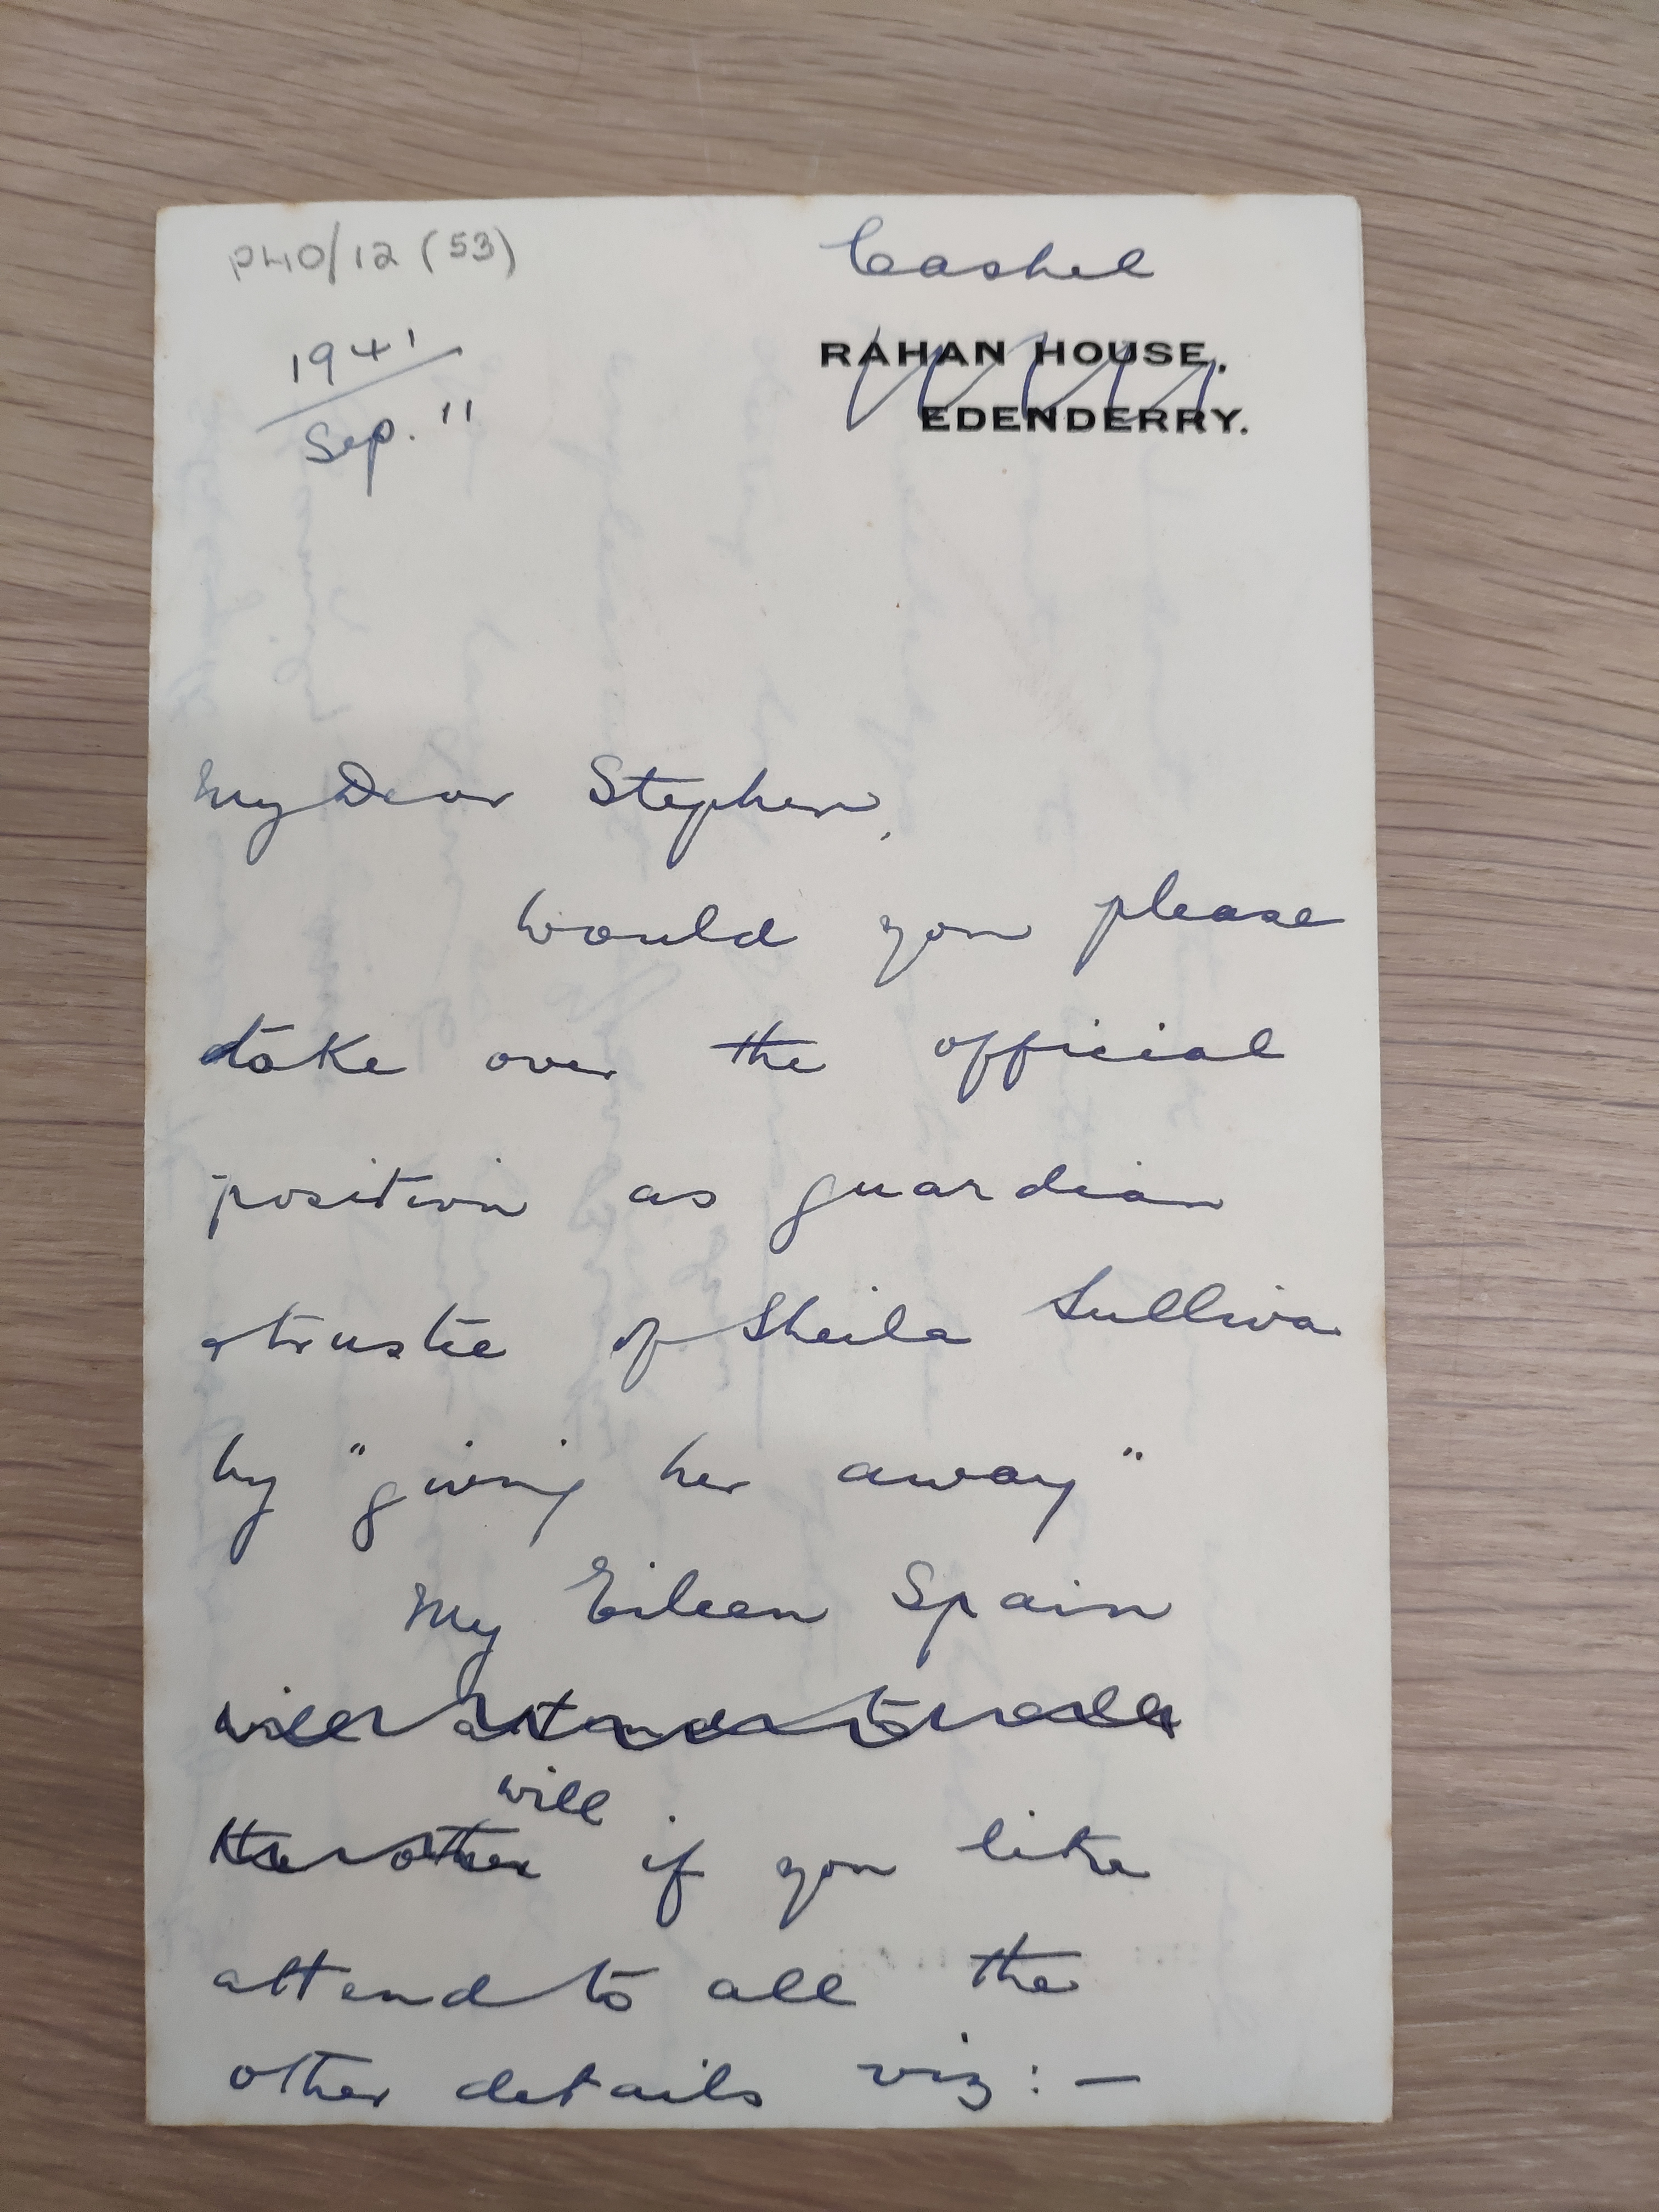 P40/12 (53)
Cashel
1941
Sep. 11
RAHAN HOUSE,
EDENDERRY.
My Dear Stephen,
Would you please
take over the official
position as guardian
& trustee of Sheila Sulliva
by "giving her away"
My Eileen Spain
will attend to all
the other will if you like
attend to all the
other details viz:—